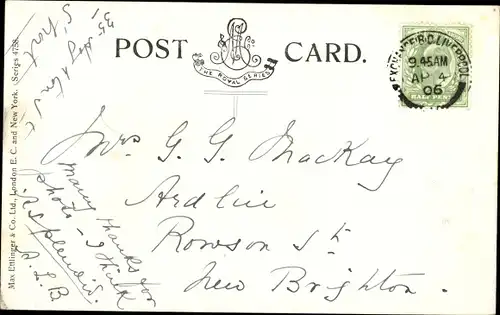 POST CARD.
THE ROYAL SERIES
EXCHANGE B.O. LIVERPOOL
9.45AM
AP 4
05
HALF PENNY
Max Ettlinger & Co. Ltd., London E. C. and New York. (Series 4758
Mrs G. G. MacKay
Ardlui
Rowson St.
New Brighton.
Many thanks for
photo - I think
it splendid.
A. L. B